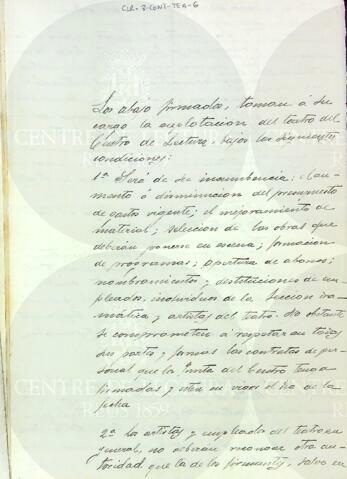 CLR-8-CONT-TEA-6
Los abajo firmados, toman á su
cargo la explotacion del teatro del
Centro de Lectura, bajo las siguientes
condiciones:
1ª Será de su incumbencia: el au-
mento ó disminucion del presupuesto
de gastos vigente; el mejoramiento de
material; seleccion de las obras que
deberán ponerse en escena; formacion
de programas; apertura de abonos;
nombramientos y destituciones de em-
pleados, individuos de la Seccion dra-
mática y artistas del teatro. No obstante
se comprometen á respetar en todas
sus partes y formas los contratos de per-
sonal que la Junta del Centro tenga
firmadas y esten en vigor el dia de la
fecha
2ª Los artistas y empleados del teatro en
general, no deberán reconocer otra au-
toridad que la de los firmantes, salvo en
CENTRE DE LECTURA
REUS 1859